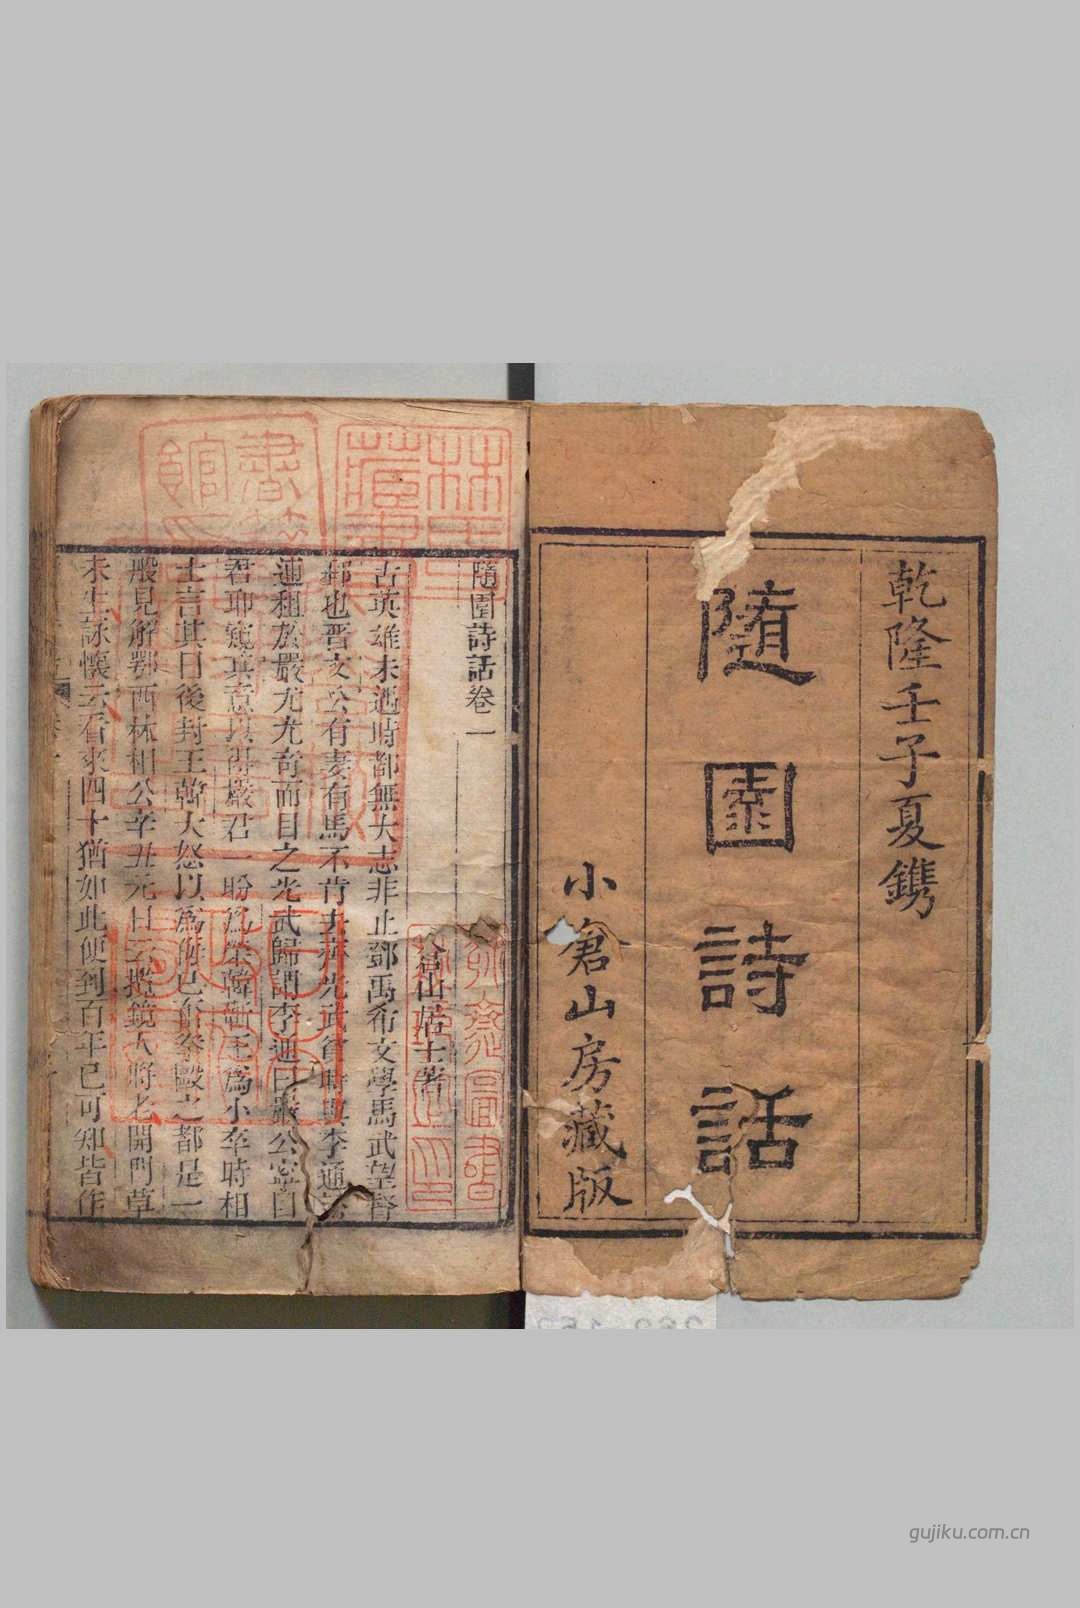 乾隆壬子夏鐫
隨園詩話
小倉山房藏版
隨園詩話卷一
倉山居士著
古英雄未遇時都無大志非止鄧禹希文學馬武望督
郵也晋文公有妻有馬不肯去齊光武貧時與李通
逋租於嚴尤尤奇而目之光武歸謂李通曰嚴公寧目
君耶窺其意以得嚴君一盼為榮韓蘄王為小卒時相
士言其日後封王韓大怒以為侮己奮拳毆之都是一
般見解鄂西林相公辛丑元日云攬鏡人將老開門草
未生詠懷云看來四十猶如此便到百年已可知皆作
gujiku.com.cn